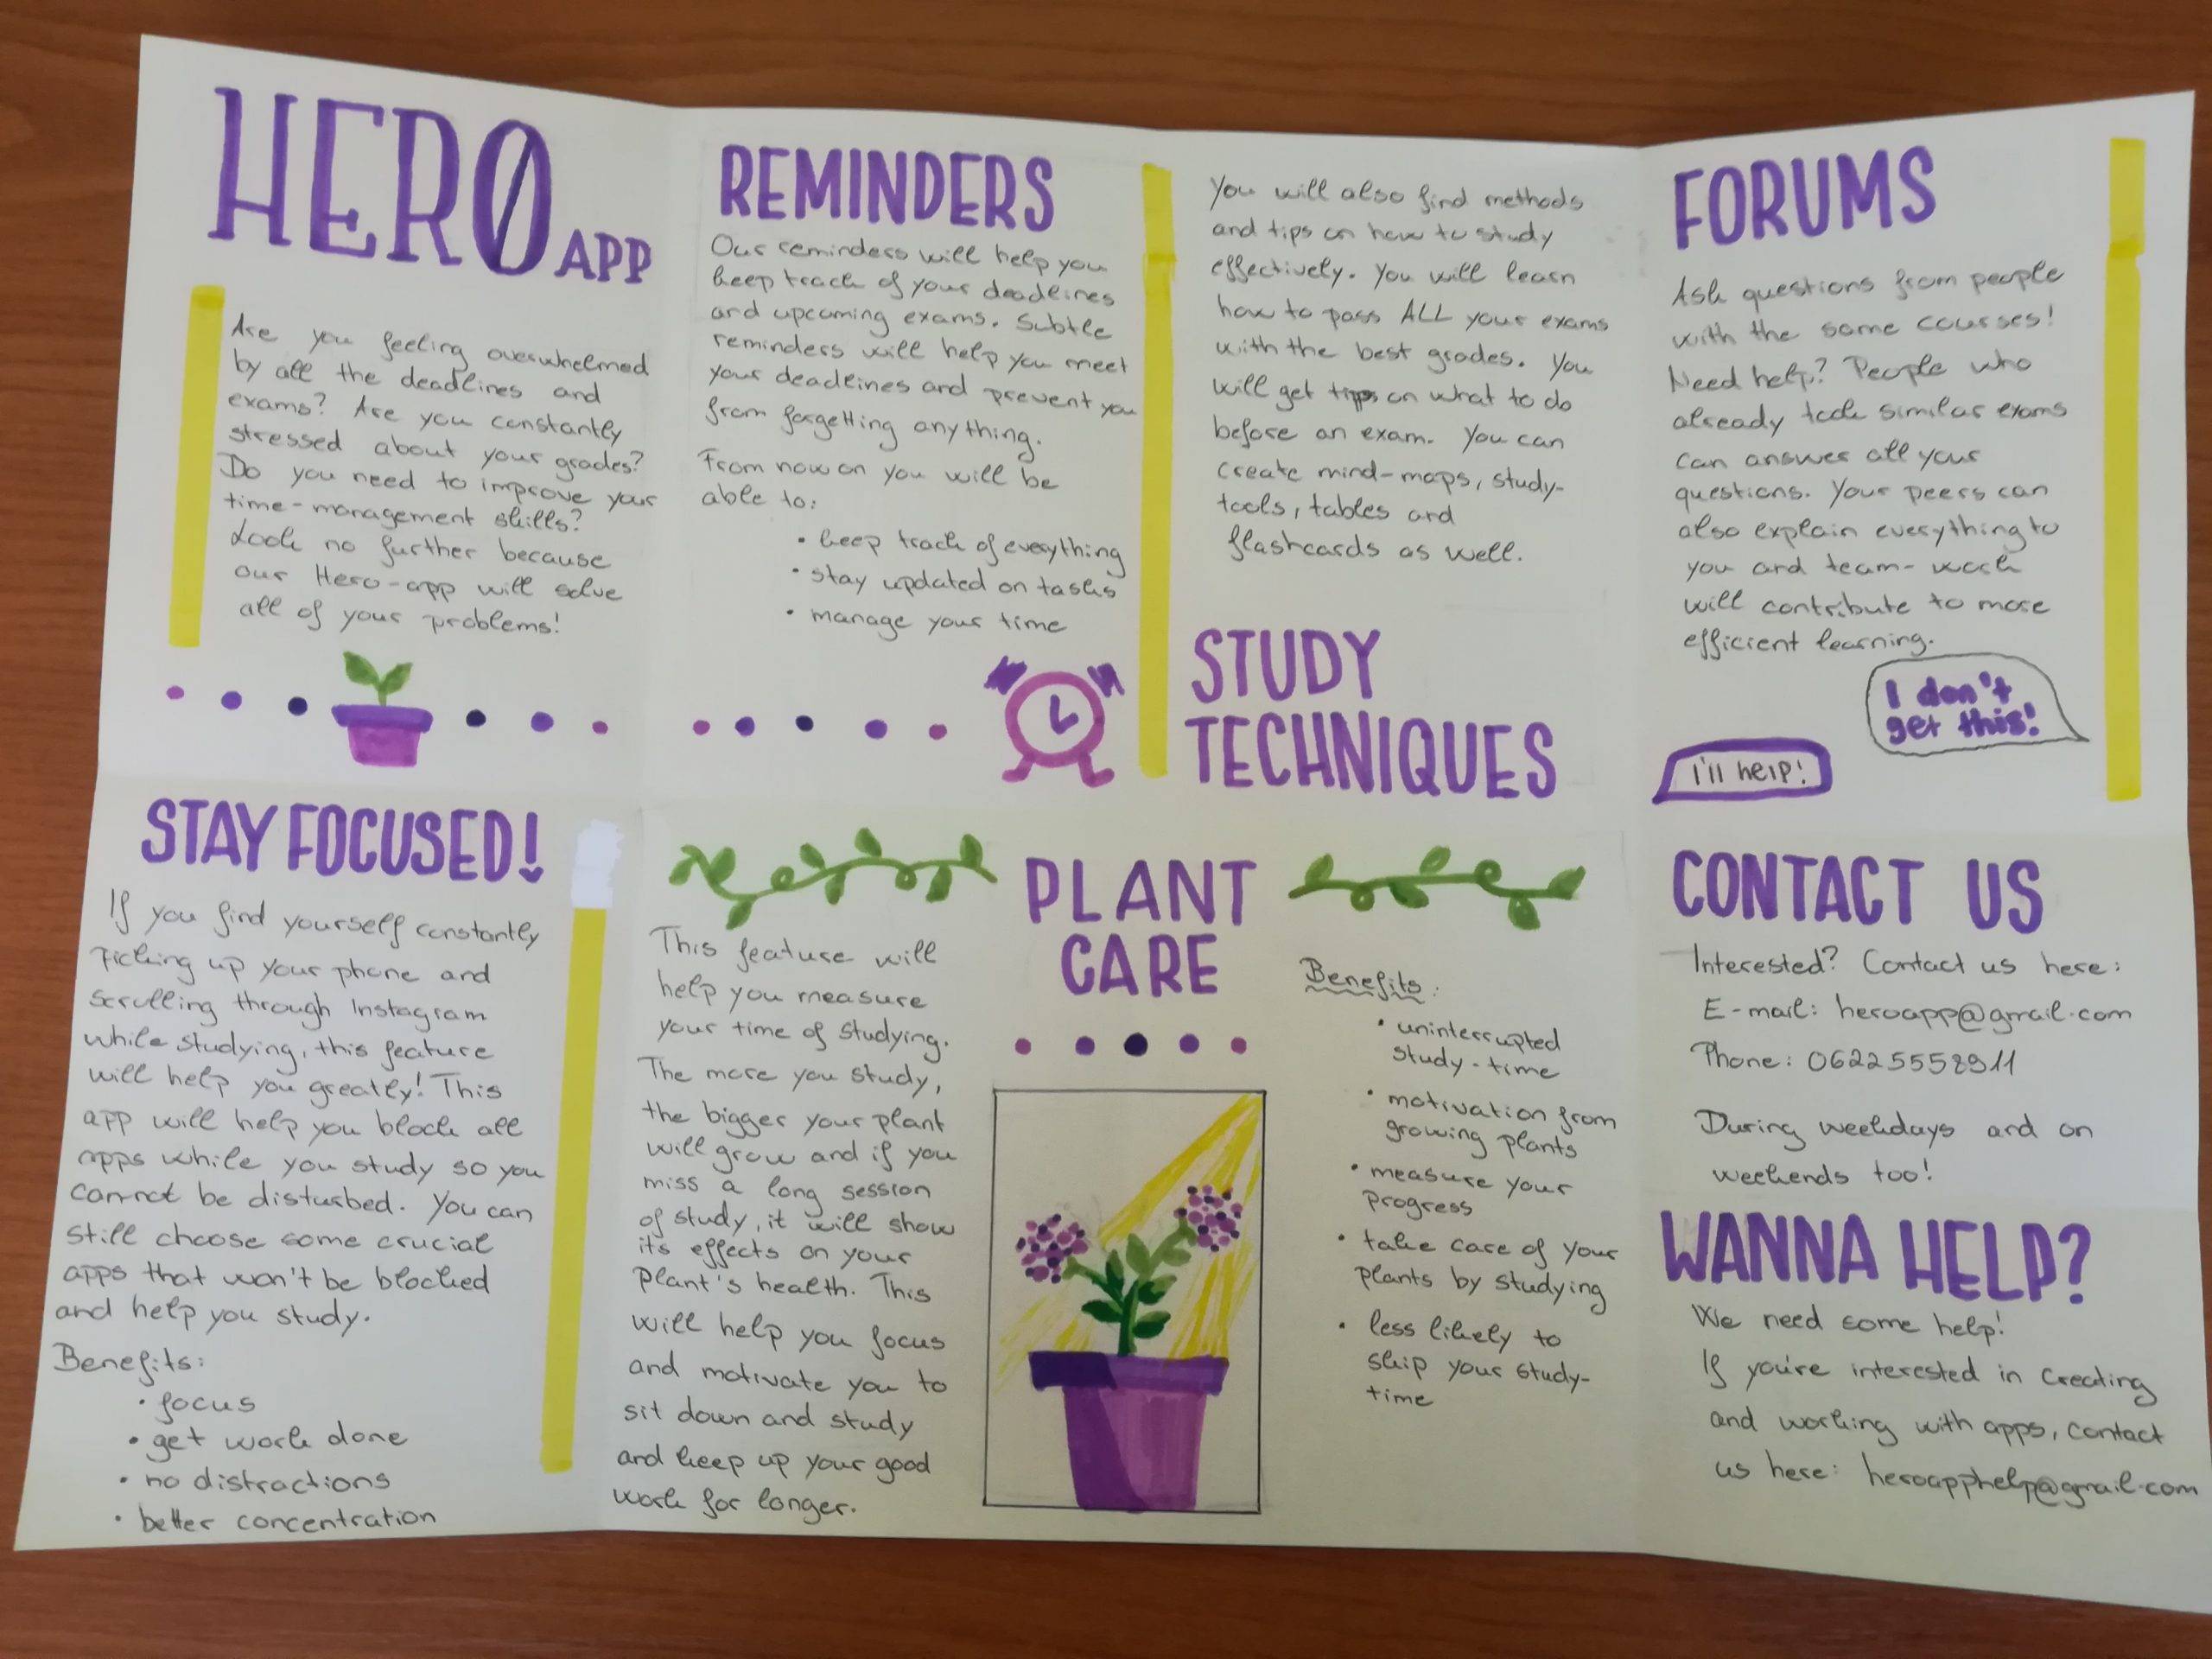 HERO APP
Are you feeling overwhelmed
by all the deadlines and
exams? Are you constantly
stressed about your grades?
Do you need to improve your
time-management skills?
Look no further because
our Hero-app will solve
all of your problems!
REMINDERS
Our reminders will help you
keep track of your deadlines
and upcoming exams. Subtle
reminders will help you meet
your deadlines and prevent you
from forgetting anything.
From now on you will be
able to:
• keep track of everything
• stay updated on tasks
• manage your time
You will also find methods
and tips on how to study
effectively. You will learn
how to pass ALL your exams
with the best grades. You
will get tips on what to do
before an exam. You can
create mind-maps, study-
tools, tables and
flashcards as well.
STUDY
TECHNIQUES
FORUMS
Ask questions from people
with the same courses!
Need help? People who
already took similar exams
can answer all your
questions. Your peers can
also explain everything to
you and team-work
will contribute to more
efficient learning.
I don't
get this!
I'll help!
STAY FOCUSED!
If you find yourself constantly
Picking up your phone and
scrolling through Instagram
while studying, this feature
will help you greatly! This
app will help you block all
apps while you study so you
cannot be disturbed. You can
still choose some crucial
apps that won't be blocked
and help you study.
Benefits:
• focus
• get work done
• no distractions
• better concentration
PLANT
CARE
This feature will
help you measure
your time of studying.
The more you study,
the bigger your plant
will grow and if you
miss a long session
of study, it will show
it's effects on your
plant's health. This
will help you focus
and motivate you to
sit down and study
and keep up your good
work for longer.
Benefits:
• uninterrupted
study-time
• motivation from
growing plants
• measure your
progress
• take care of your
plants by studying
• less likely to
skip your study-
time
CONTACT US
Interested? Contact us here:
E-mail: heroapp@gmail.com
Phone: 06225558911
During weekdays and on
weekends too!
WANNA HELP?
We need some help!
If you're interested in creating
and working with apps, contact
us here: heroapphelp@gmail.com